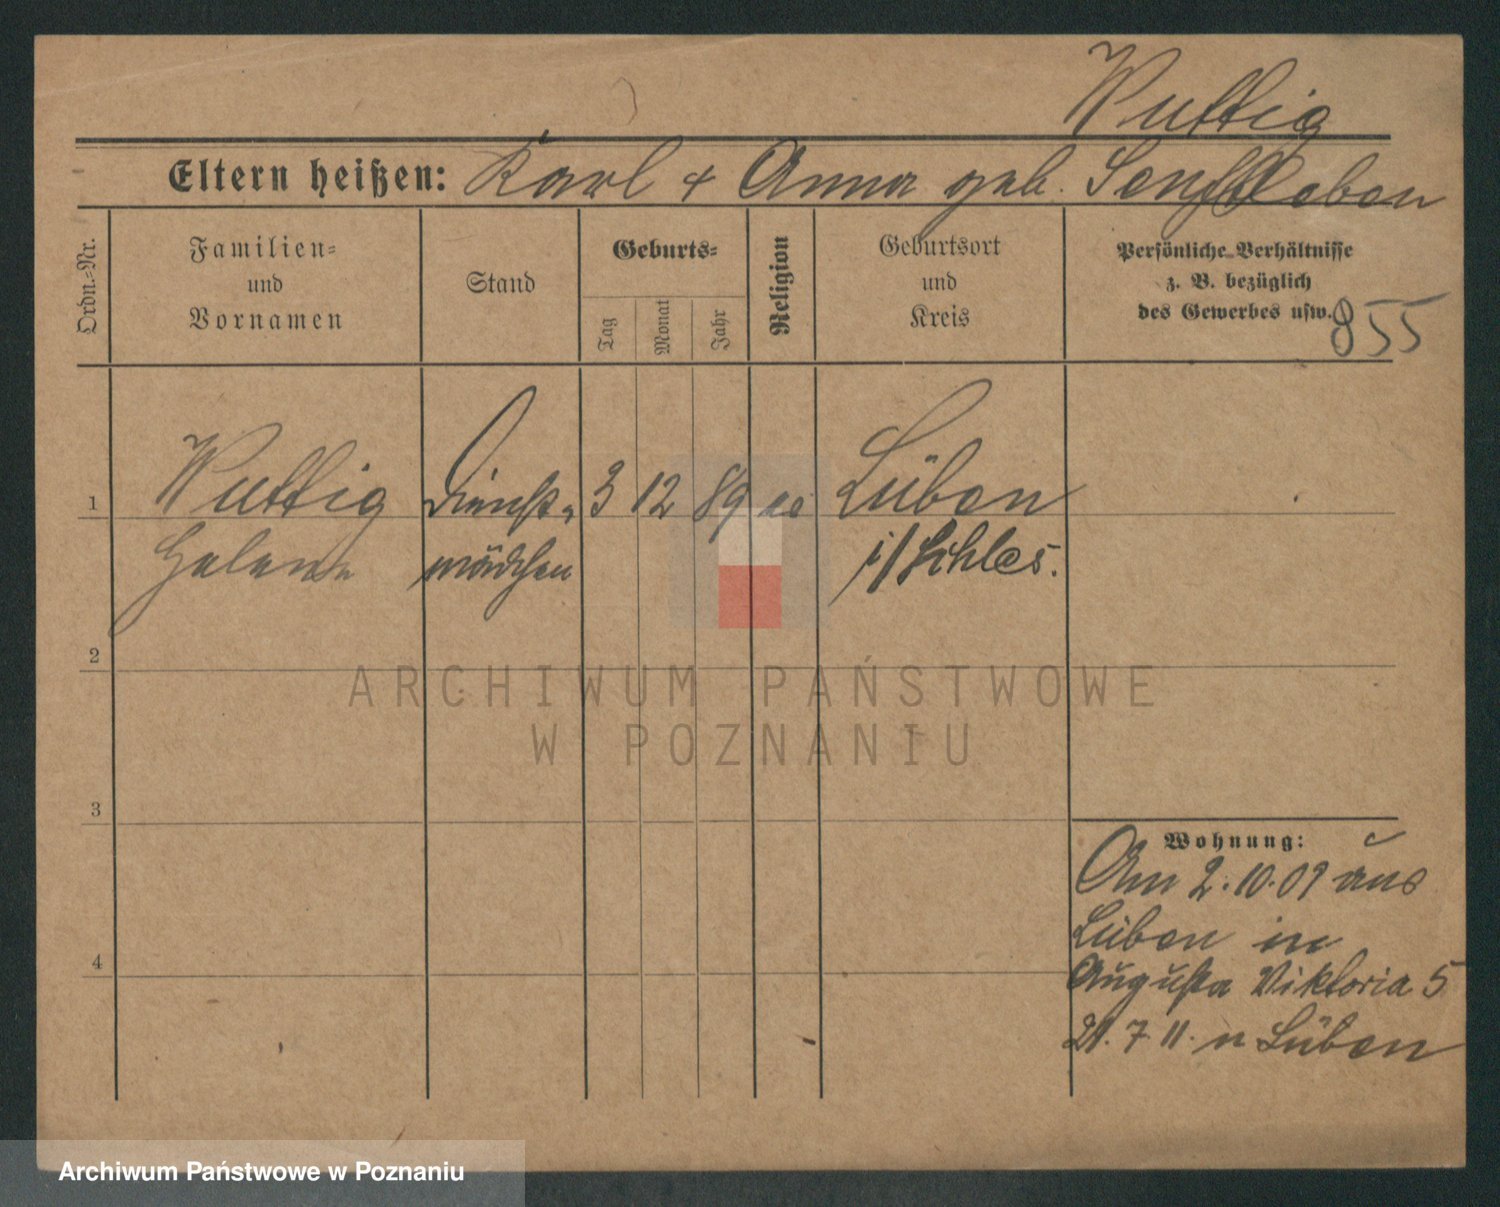 Wuttig
Eltern heißen: Karl + Anna geb. Senftleben
Ordn.-Nr.
Familien-
und
Vornamen
Stand
Geburts-
Tag
Monat
Jahr
Religion
Geburtsort
und
Kreis
Persönliche Verhältnisse
z. B. bezüglich
des Gewerbes usw.
855
1
Wuttig
Helene
Dienst-
mädchen
3 12 89
Lüben
i/Schles.
2
3
4
Wohnung:
Am 2.10.09 aus
Lüben in
Augusta Viktoria 5
21.7.11. n Lüben
ARCHIWUM PAŃSTWOWE
W POZNANIU
Archiwum Państwowe w Poznaniu